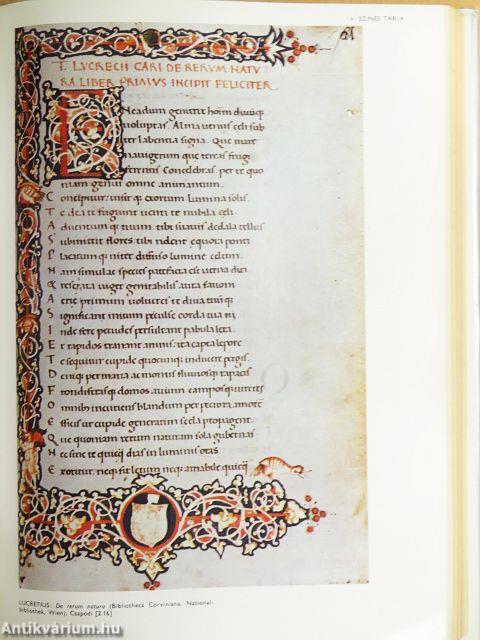 V. SZÍNES TÁBLA
T. LVCRECII CARI DE RERVM NATV
RA LIBER PRIMVS INCIPIT FELICITER
ENeadum genitrix hom diuūq
voluptas. Alma uenus celi sub
ter labentia signa. Que mare
nauigerum que terras frugi
ferentis Concelebras. per te quo
niam genus omne animantum
Concipitur, uisitq exortum lumina solis.
Te dea te fugiunt uenti te nubila celi.
Aduentumq tuum tibi suauis dedala tellus
Submittit flores. tibi rident equora ponti
Placatumq nitet diffuso lumine celum.
Nam simulac species patefacta est uerna diei
& reserata uiget genitabilis aura fauoni
Aerie primum volucres te diua tuūq
Significant initum perculse corda tua ui
Inde fere pecudes persultant pabula leta.
Et rapidos tranant amnis. ita capta lepore
Te sequitur cupide quocunq inducere pergis.
Deniq per maria ac montis fluuiosq rapacis
Frondiferasq domos auium camposq uirentes
Omnibus incutiens blandum per pectora amorē
Efficis ut cupide generatim secla propagent.
Que quoniam rerum naturam sola gubernas
Nec sine te quicq dias in luminis oras
Exoritur. neq fit letum neq amabile quicq
LUCRETIUS: De rerum natura (Bibliotheca Corviniana, National-
bibliothek, Wien), Csapodi [2.16]
Antikvárium.hu